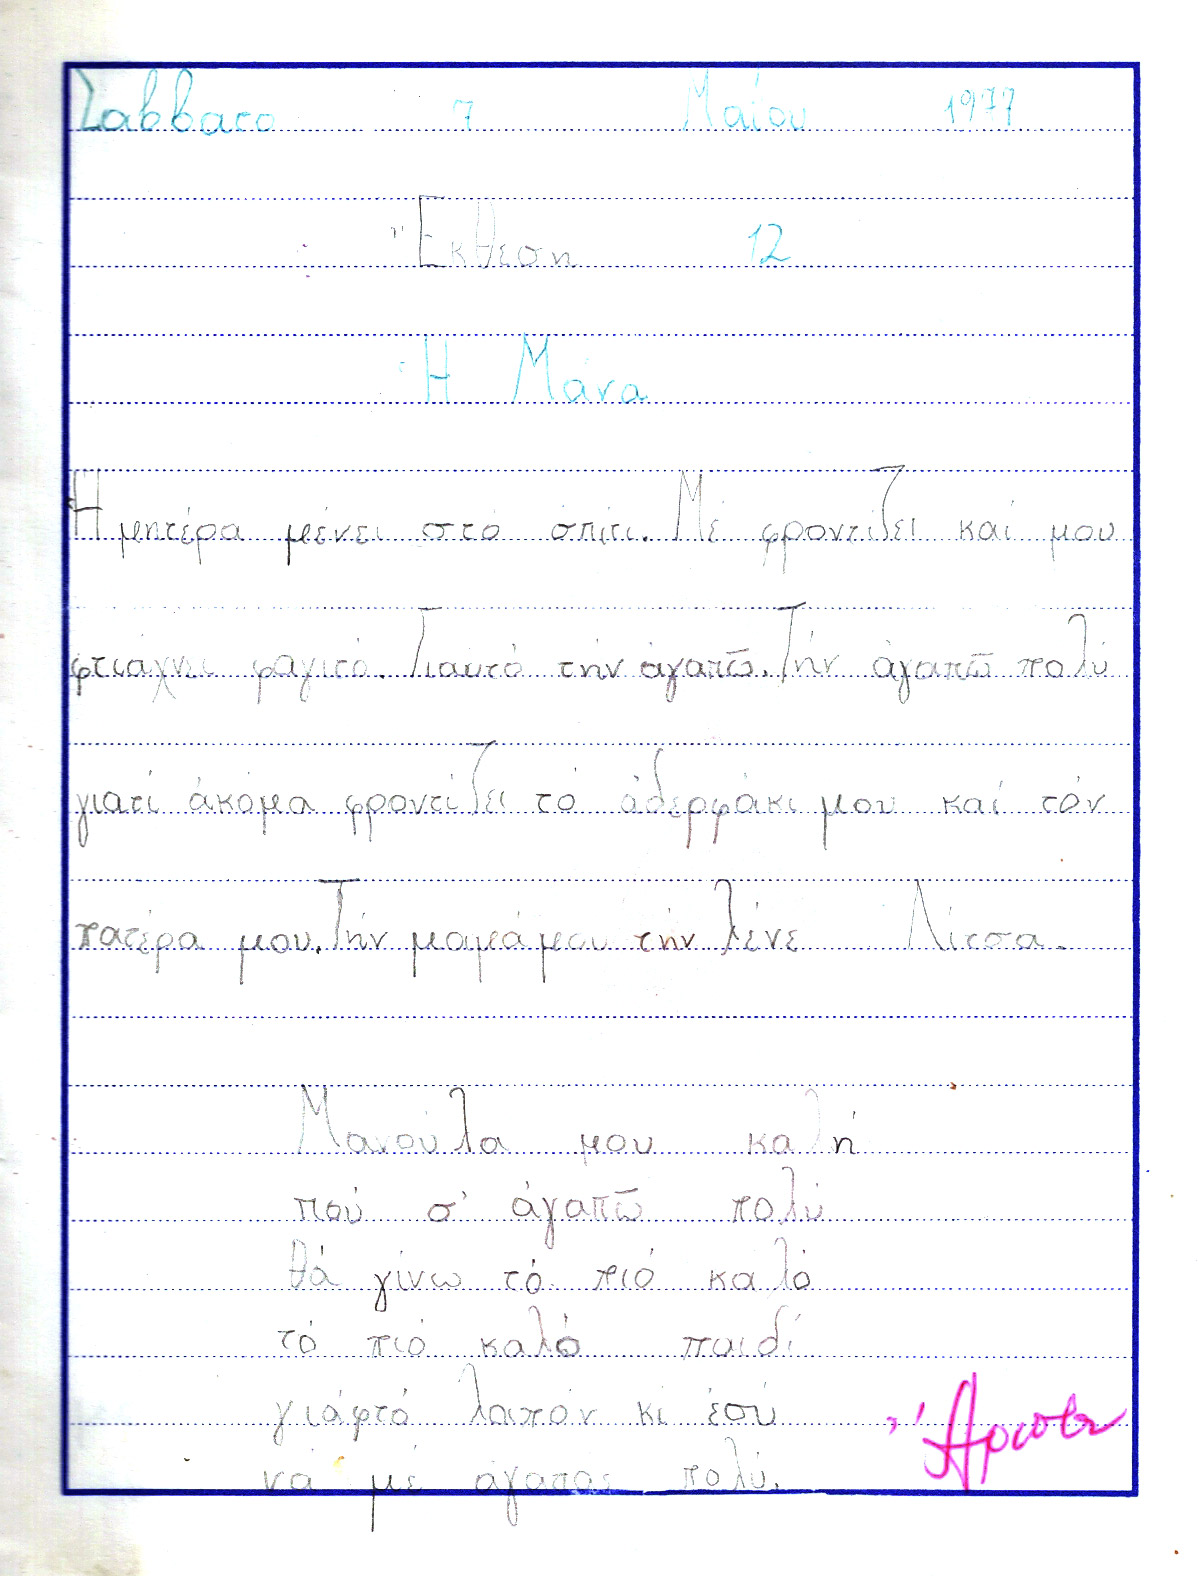 Σαββατο 7 Μαΐου 1977
Ἔκθεση 12
Ἡ Μάνα
Ἡ μητέρα μένει στό σπίτι. Μέ φροντίζει καί μου
φτιάχνει φαγιτό. Γιαυτό τήν ἀγαπῶ. Τήν ἀγαπῶ πολύ
γιατί ἀκόμα φροντίζει τό ἀδερφάκι μου καί τόν
πατέρα μου. Τήν μαμά μου τήν λένε Λίτσα.
Μανούλα μου καλή
πού σ' ἀγαπῶ πολύ
θά γίνω τό πιό καλό
τό πιό καλό παιδί
γιάφτό λοιπόν κι ἐσύ
νά μέ ἀγαπας πολύ.
Ἄριστα